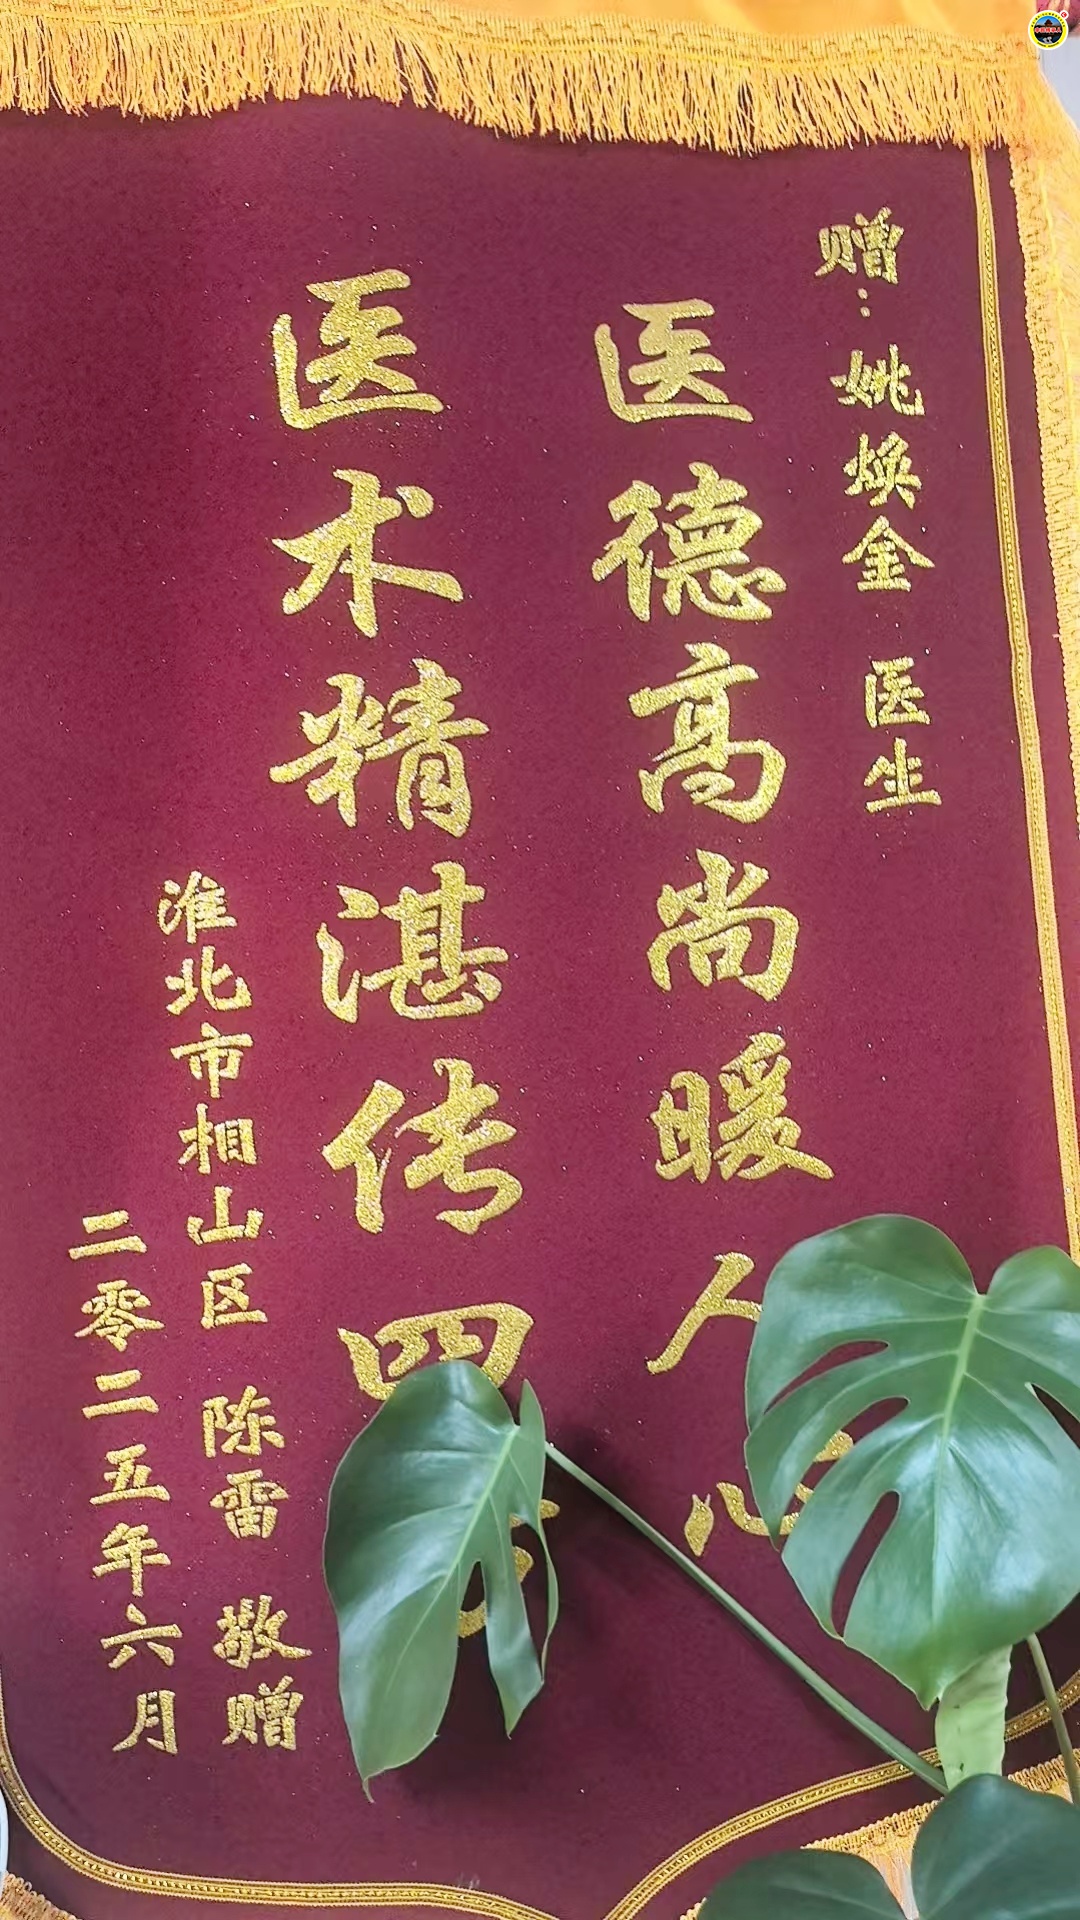 赠：姚焕金 医生
医德高尚暖人心
医术精湛传四
淮北市相山区 陈雷 敬赠
二零二五年六月